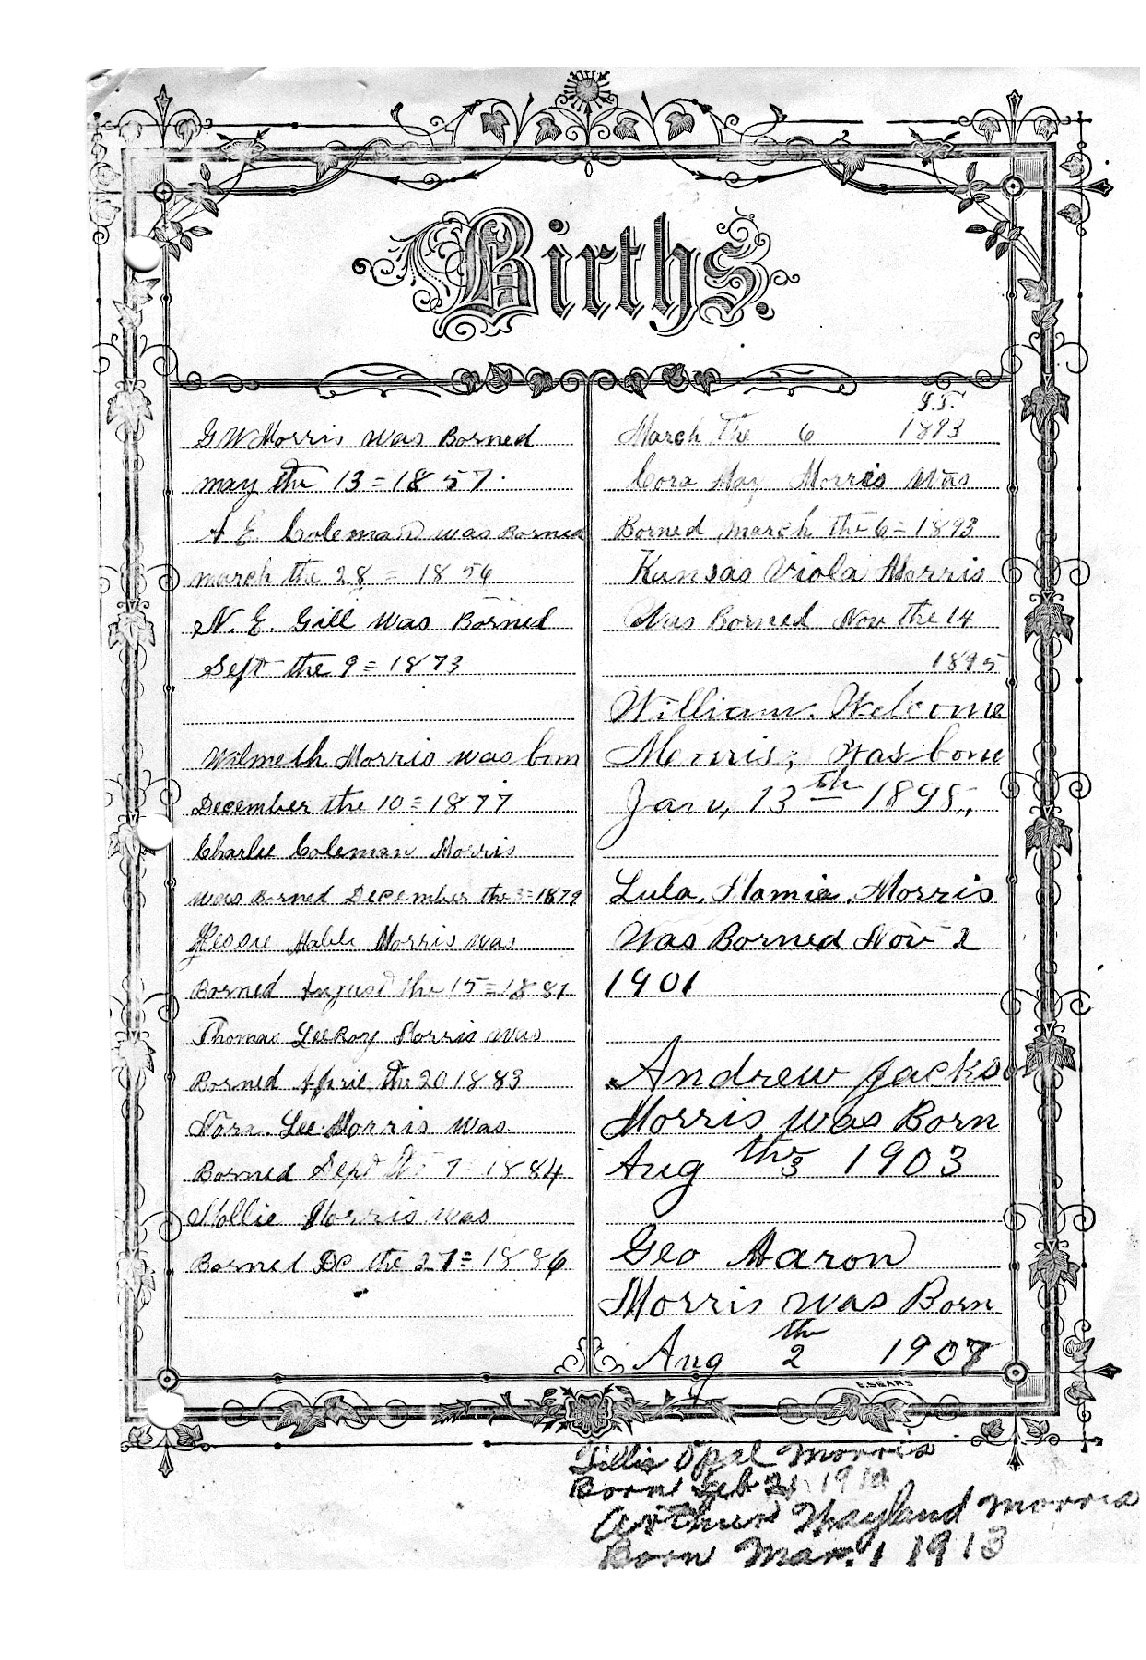 Births.
G W Morris was Borned
may the 13 = 1857.
A E Coleman was Borned
march the 28 = 1856
N. E. Gill was Borned
Sept the 9 = 1873
Wilmeth Morris was born
December the 10 = 1877
Charlie Coleman Morris
was Borned December the 3 = 1879
Jessie Mable Morris was
Borned August the 15 = 1881
Thomas LeeRoy Morris was
Borned April the 20 1883
Lee Morris was
Borned Sept 7 = 1884
Mollie Morris was
Borned De the 27 = 1886
March The 6 1893
Cora May Morris was
Borned march the 6 = 1893
Kansas Viola Morris
Was Borned Nov the 14
1895
William. Welcome
Morris; was bone
Janu, 13th 1898,
Lula. Mamie. Morris
Was Borned Nov 2
1901
Andrew Jackso
Morris was Born
Aug the 3 1903
Geo Aaron
Morris was Born
Aug 2th 1907
E. SEARS
Opal Morris
Born Feb 21 1910
Arthur Wayland Morris
Born Mar. 1 1913